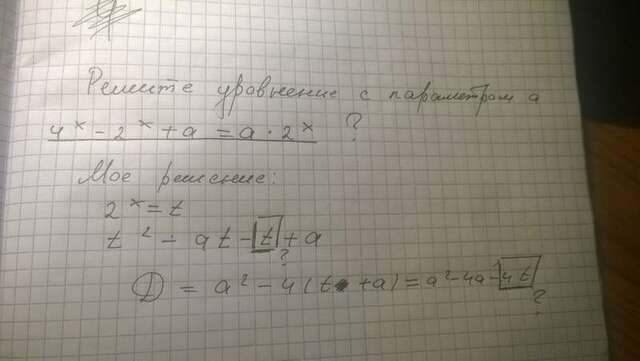 Решите уравнение с параметром а
4^x - 2^x + a = a · 2^x ?
Мое решение:
2^x = t
t² - at - t + a
?
D = a² - 4(t + a) = a² - 4a - 4t
?